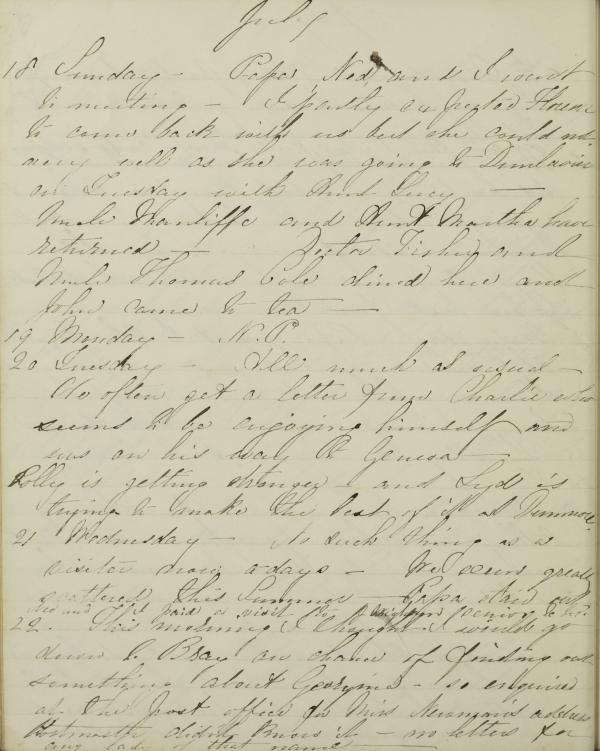 July
18 Sunday - Papa, Ned and I went
to meeting - I partly expected Florence
to come back with us but she could not
very well as she was going to Dunlavin
on Tuesday with Aunt Lucy -
Uncle Wardliffe and Aunt Martha have
returned - Doctor Fisher and
Uncle Thomas Cole dined here and
John came to tea -
19 Monday - N.P.
20 Tuesday - All much as usual -
We often get a letter from Charlie who
seems to be enjoying himself and
was on his way to Geneva -
Polly is getting stronger - and Lyd is
trying to make the best of it at Dunmore
21 Wednesday - No such thing as a
visitor now a days - We seem greatly
scattered this Summer - Papa staid out
and I paid a visit to
22. This morning I thought I would go
down to Bray on chance of finding out
something about Georgina - so enquired
at the post office for Miss Newman's address
Postmaster didn't know it - no letters for
any lady of that name -